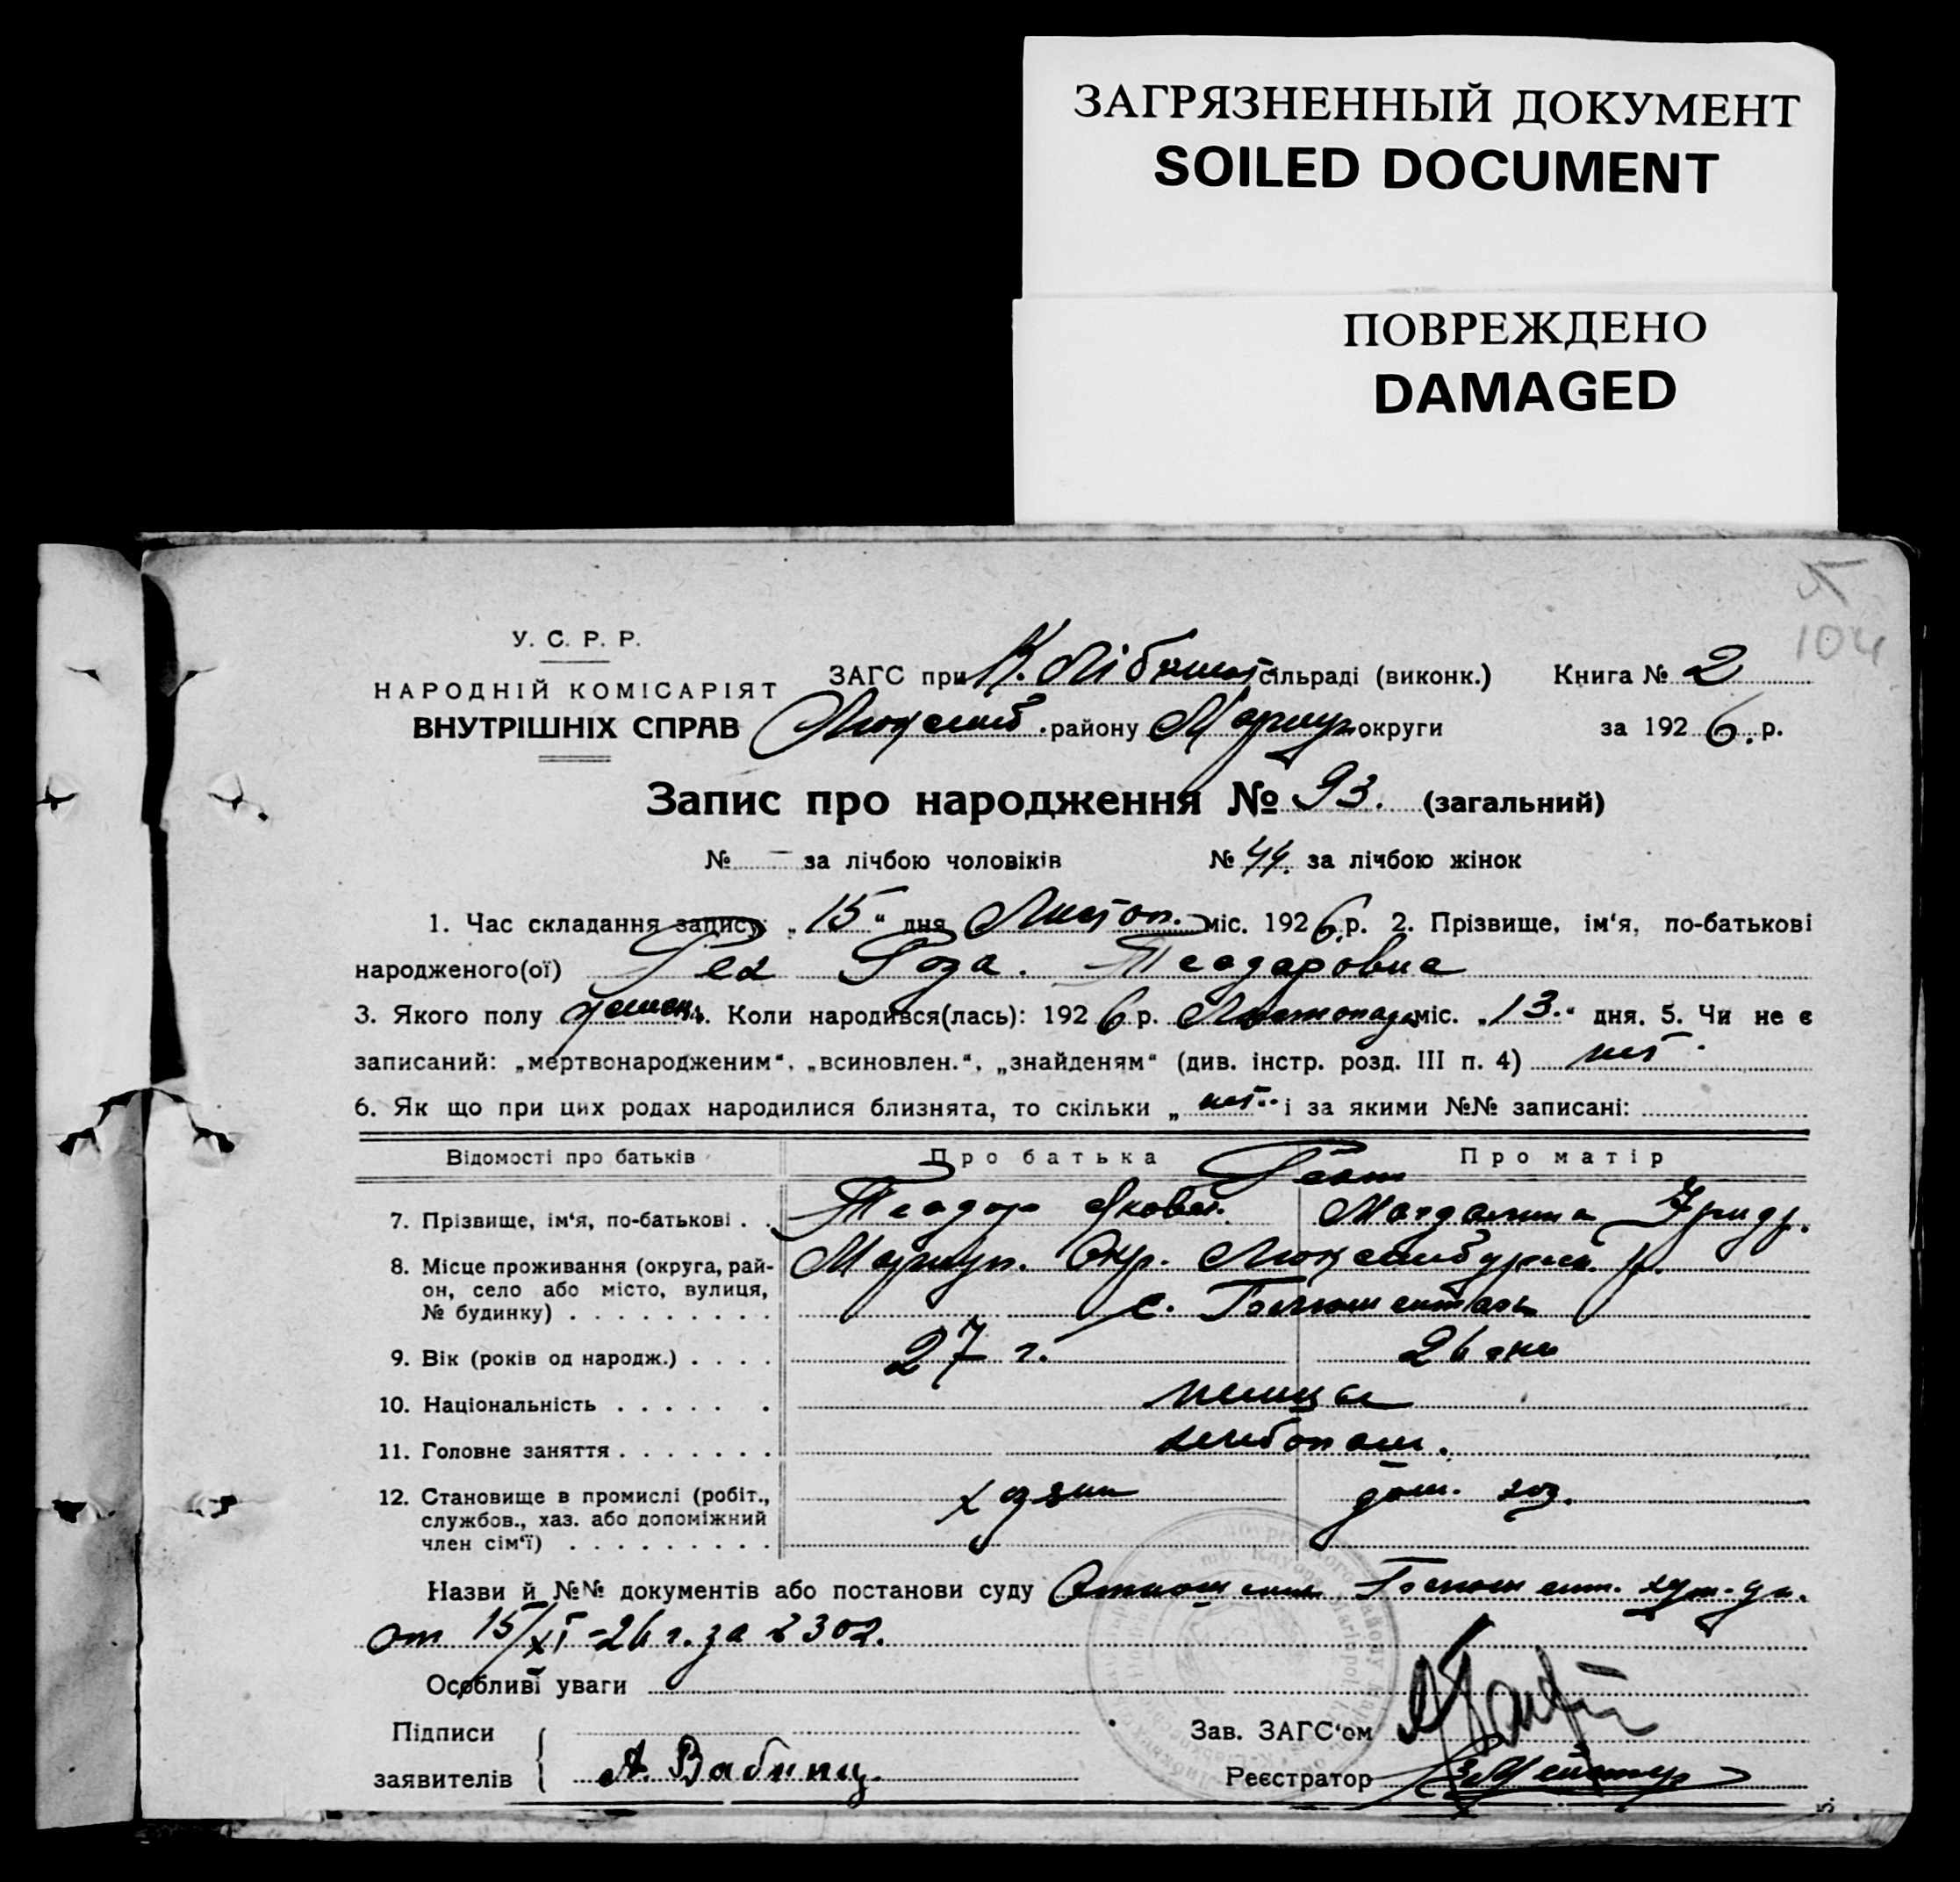 ЗАГРЯЗНЕННЫЙ ДОКУМЕНТ
SOILED DOCUMENT
ПОВРЕЖДЕНО
DAMAGED
104
У. С. Р. Р.
НАРОДНІЙ КОМІСАРІЯТ
ВНУТРІШНІХ СПРАВ
ЗАГС при сільраді (виконк.) Книга № 2
району Маріуп. округи за 1926. р.
Запис про народження № 93. (загальний)
№ – за лічбою чоловіків № 44. за лічбою жінок
1. Час складання запису: „15" дня Листоп. міс. 1926 р. 2. Прізвище, ім'я, по-батькові
народженого(ої) Роза. Теодоровна
3. Якого полу женск. Коли народився(лась): 1926 р. Листопада міс. „13." дня. 5. Чи не є
записаний: „мертвонародженим", „всиновлен.", „знайденям" (див. інстр. розд. III п. 4) нет
6. Як що при цих родах народилися близнята, то скільки „нет" і за якими №№ записані:
Відомості про батьків Про батька Про матір
7. Прізвище, ім'я, по-батькові . . Теодор Яковл. Магдалина Фридр.
8. Місце проживання (округа, рай-
он, село або місто, вулиця,
№ будинку) . . . . . . . . .
Мариуп. Окр. Люксембургск. р.
с.
9. Вік (років од народж.) . . . . 27 г. 26
10. Національність . . . . . . немцы
11. Головне заняття . . . . . . . хлебопаш.
12. Становище в промислі (робіт.,
службов., хаз. або допоміжний
член сім'ї) . . . . . . . . .
хозяин дом. хоз.
Назви й №№ документів або постанови суду Отношение
от 15/XI-26 г. за № 302.
Особливі уваги
Підписи
заявителів
Зав. ЗАГС'ом
Реєстратор